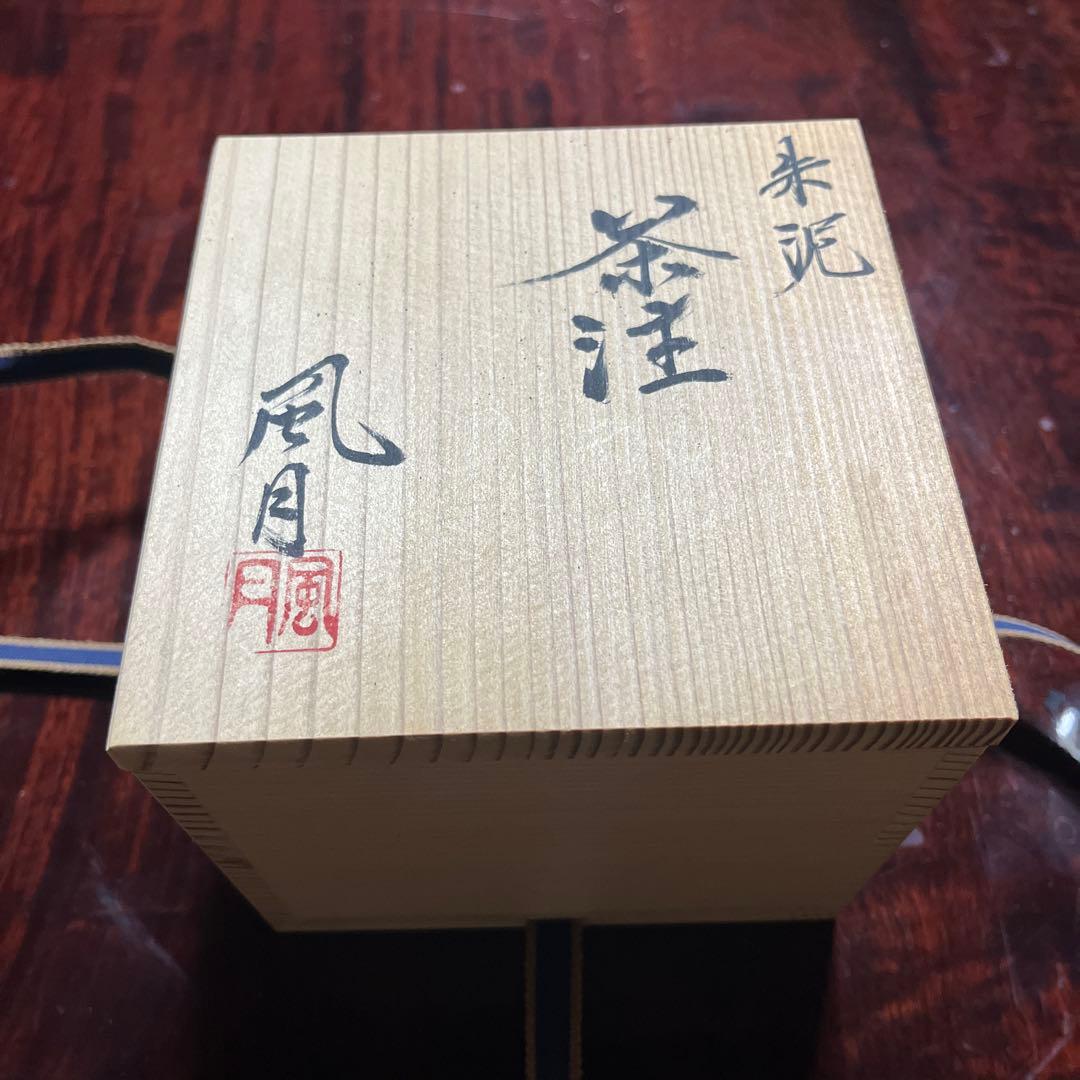 朱泥
茶注
風月
風月